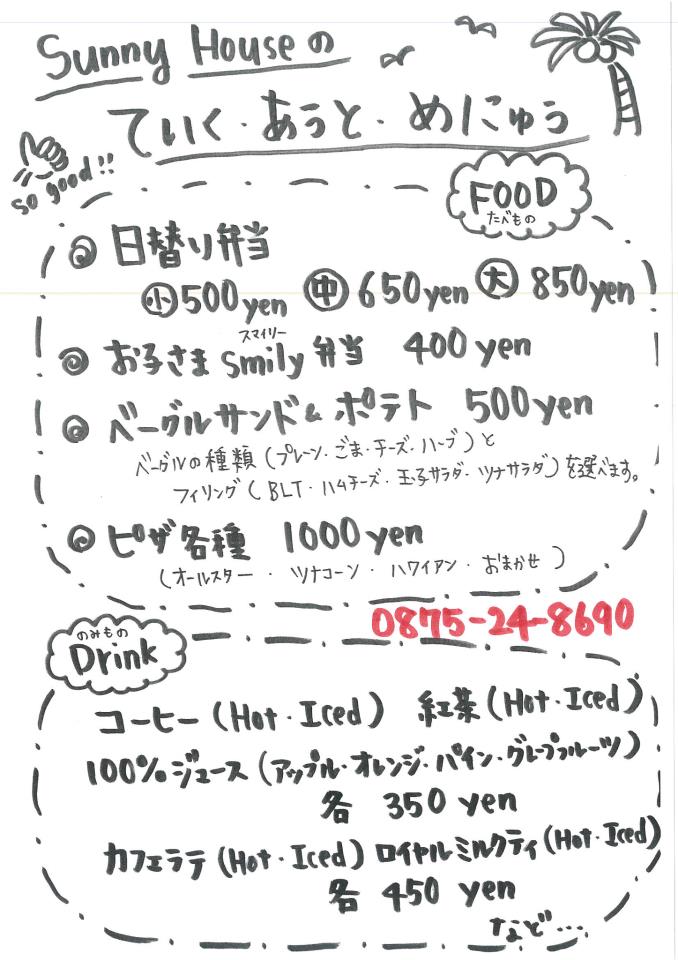 Sunny Houseの
ていく・あうと・めにゅう
so good!!
FOOD
たべもの
日替り弁当
小500yen 中650yen 大850yen
スマイリー
お子さまsmily弁当 400yen
ベーグルサンド&ポテト 500yen
ベーグルの種類(プレーン・ごま・チーズ・ハーブ)と
フィリング(BLT・ハムチーズ・玉子サラダ・ツナサラダ)を選べます。
ピザ各種 1000yen
(オールスター・ツナコーン・ハワイアン・おまかせ)
0875-24-8690
のみもの
Drink
コーヒー(Hot・Iced) 紅茶(Hot・Iced)
100%ジュース(アップル・オレンジ・パイン・グレープフルーツ)
各 350 yen
カフェラテ(Hot・Iced) ロイヤルミルクティ(Hot・Iced)
各 450 yen
など…